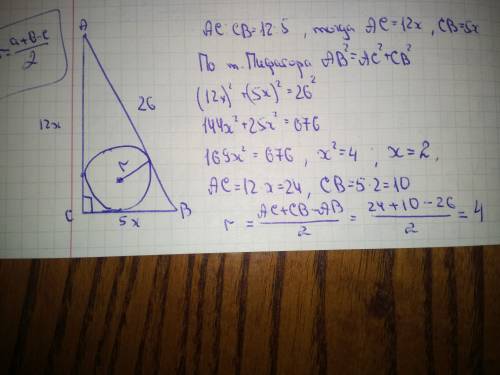 r = (a+b-c)/2
A
12x
26
r
C
5x
B
AC:CB=12:5, тогда AC=12x, CB=5x
По т. Пифагора AB²=AC²+CB²
(12x)²+(5x)²=26²
144x²+25x²=676
169x²=676, x²=4; x=2,
AC=12·x=24, CB=5·2=10
r = (AC+CB-AB)/2 = (24+10-26)/2 = 4